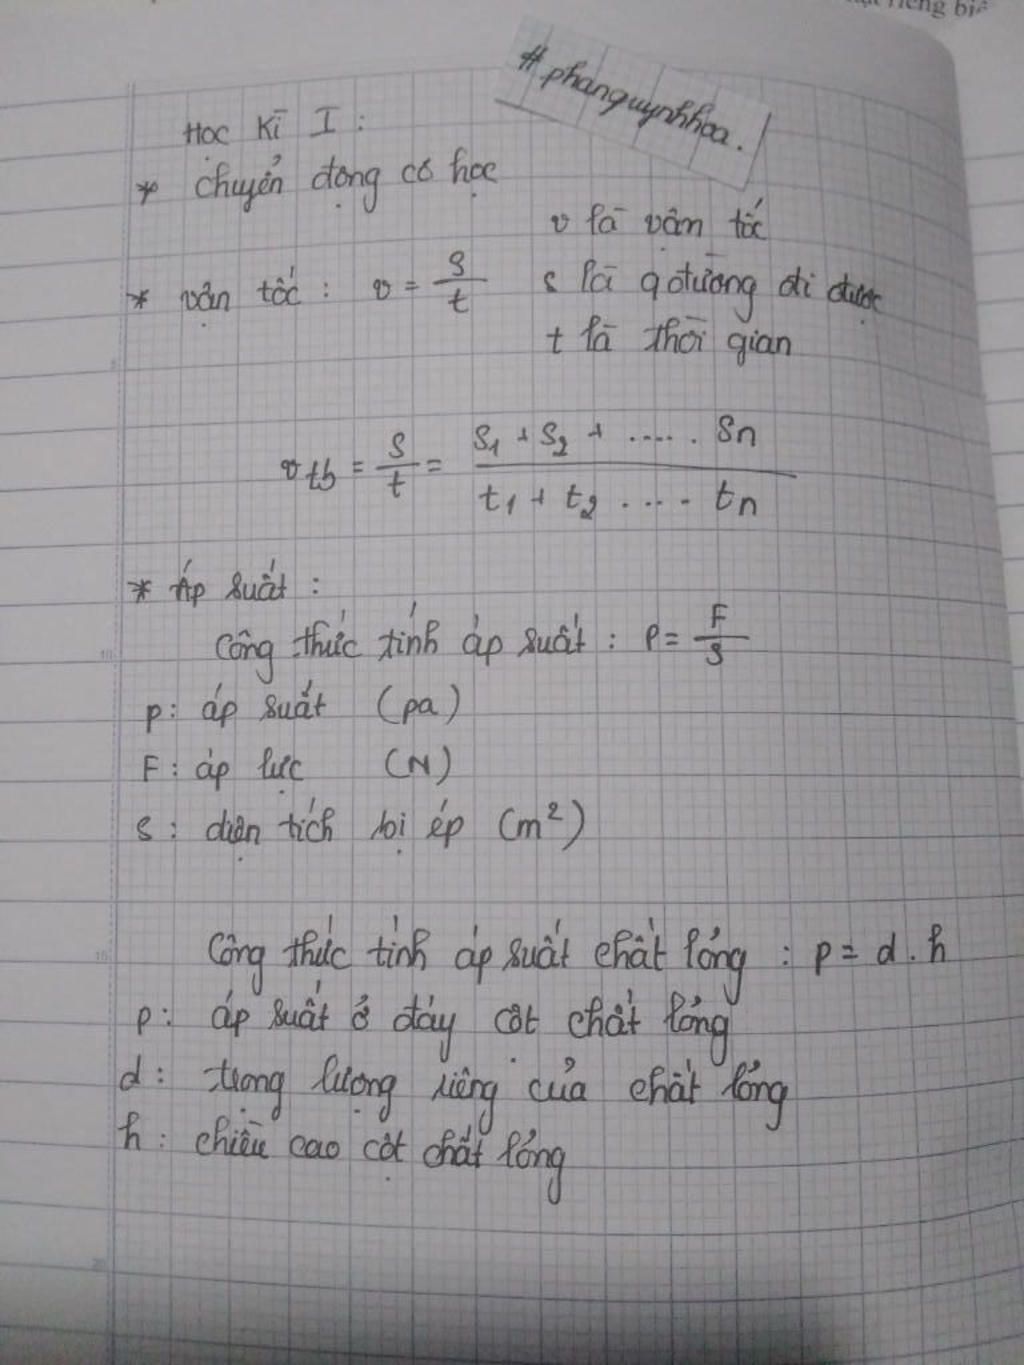 #phanquynhhoa.
Học Kì I :
* chuyển động cơ học
v là vận tốc
* vận tốc : v = s/t s là qđường đi được
t là thời gian
v tb = s/t = s1 + s2 + ..... sn / t1 + t2 .... tn
* Áp suất :
Công thức tính áp suất : P = F/s
p : áp suất (pa)
F : áp lực (N)
s : diện tích bị ép (m²)
Công thức tính áp suất chất lỏng : p = d . h
p : áp suất ở đáy cột chất lỏng
d : trọng lượng riêng của chất lỏng
h : chiều cao cột chất lỏng